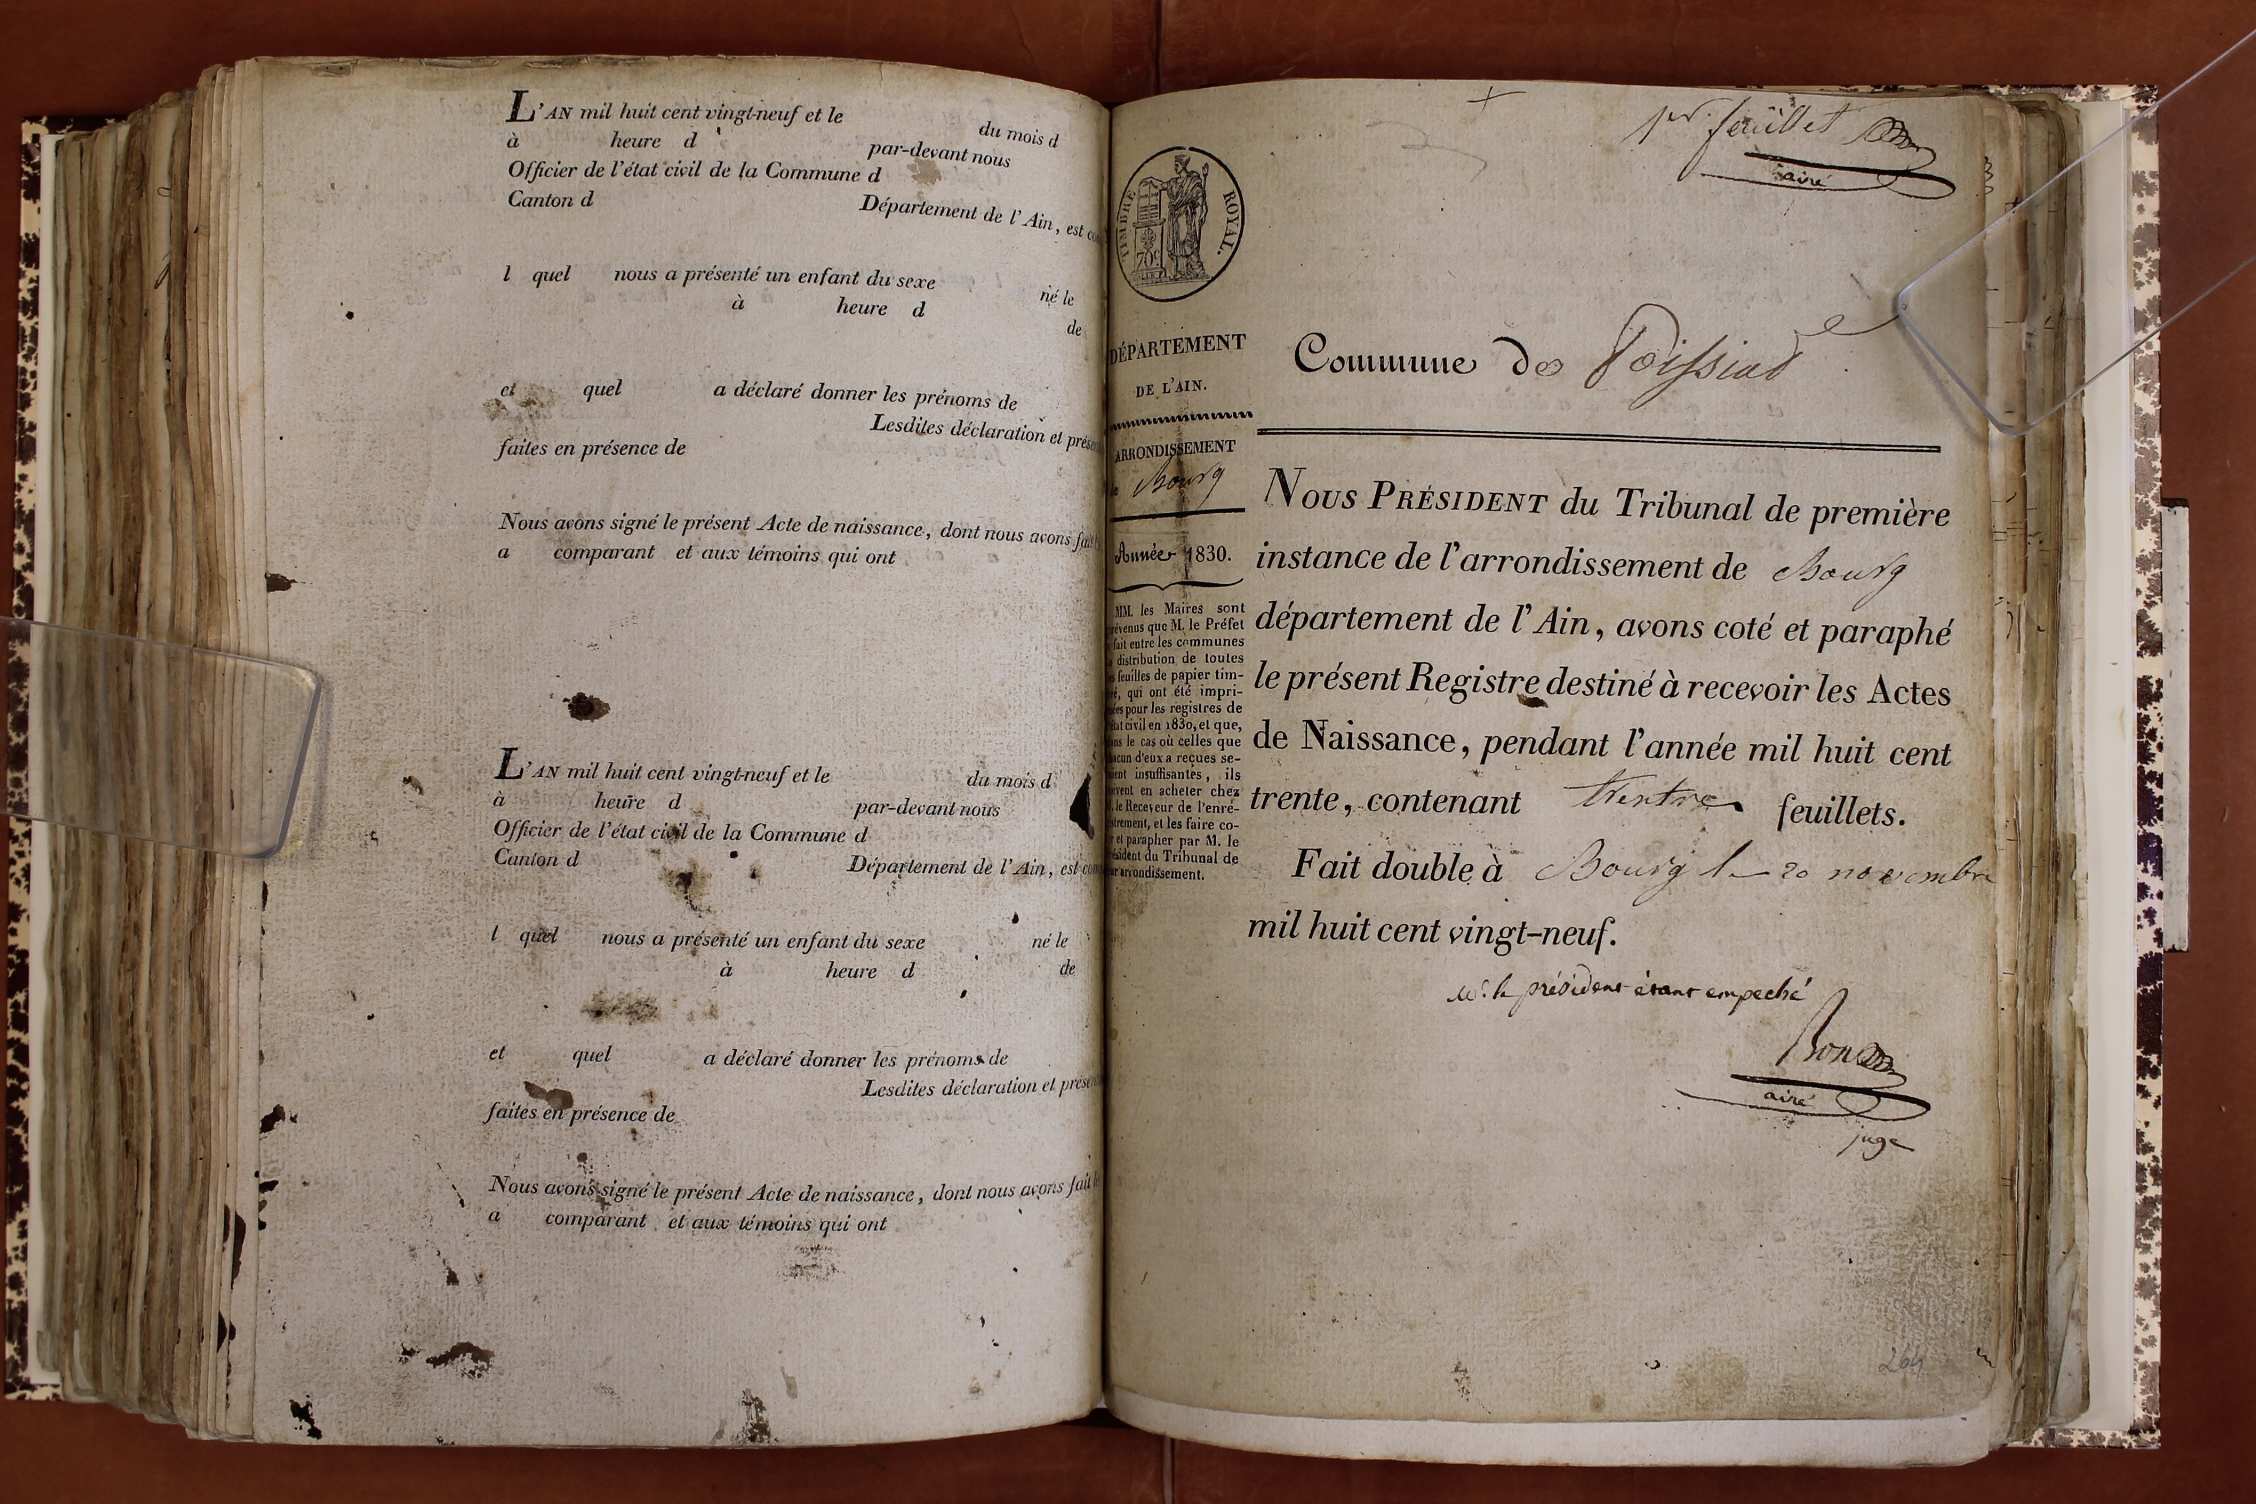 L'AN mil huit cent vingt-neuf et le du mois d
à heure d par-devant nous
Officier de l'état civil de la Commune d
Canton d Département de l'Ain, est
l quel nous a présenté un enfant du sexe né le
à heure d de
et quel a déclaré donner les prénoms de
Lesdites déclaration et
faites en présence de
Nous avons signé le présent Acte de naissance, dont nous avons fait
a comparant et aux témoins qui ont
L'AN mil huit cent vingt-neuf et le du mois d
à heure d par-devant nous
Officier de l'état civil de la Commune d
Canton d Département de l'Ain, est
l quel nous a présenté un enfant du sexe né le
à heure d de
et quel a déclaré donner les prénoms de
Lesdites déclaration et
faites en présence de
Nous avons signé le présent Acte de naissance, dont nous avons fait
a comparant et aux témoins qui ont
1er feuillet
airé
TIMBRE ROYAL.
70c
DÉPARTEMENT
DE L'AIN.
ARRONDISSEMENT
Bourg
Année 1830.
MM. les Maires sont
que M. le Préfet
fait entre les communes
distribution de toutes
feuilles de papier tim-
qui ont été impri-
pour les registres de
civil en 1830, et que,
le cas où celles que
d'eux a reçues se-
insuffisantes, ils
en acheter chez
le Receveur de l'enre-
et les faire co-
et parapher par M. le
du Tribunal de
arrondissement.
Commune de Poissiat
NOUS PRÉSIDENT du Tribunal de première
instance de l'arrondissement de Bourg
département de l'Ain, avons coté et paraphé
le présent Registre destiné à recevoir les Actes
de Naissance, pendant l'année mil huit cent
trente, contenant trentre feuillets.
Fait double à Bourg le 20 novembre
mil huit cent vingt-neuf.
Mr. le président étant empeché
airé
juge
264